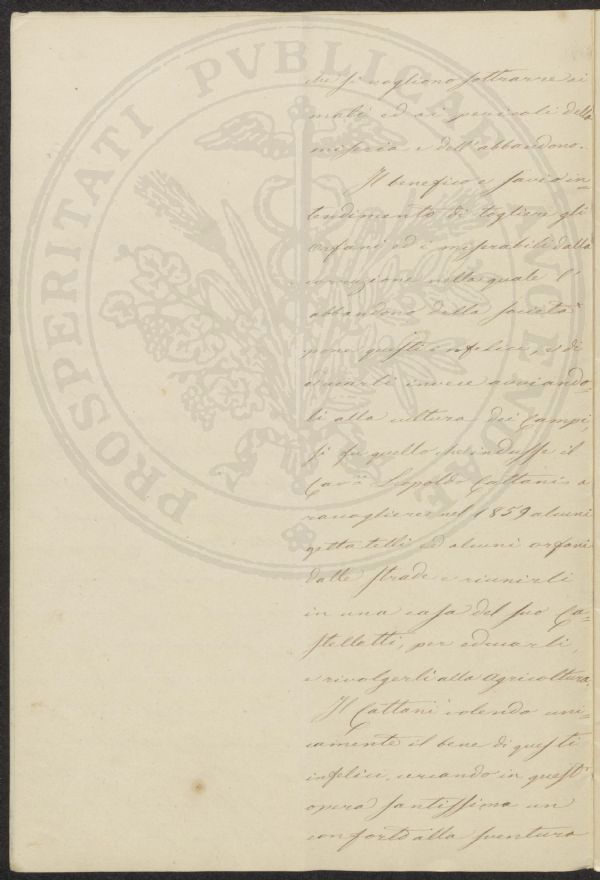 PROSPERITATI PVBLICAE AVGENDAE
che si vogliono sottrarre ai
mali ed ai pericoli della
miseria e dell'abbandono.
Il benefico e savio in=
tendimento di togliere gli
Orfani ed i miserabili dalla
corruzione nella quale l'
abbandono della società
pone questi infelici, e di
educarli invece avviando=
li alla cultura dei Campi,
si fu quello, che indusse il
Cav.e Leopoldo Cattani a
raccogliere nel 1859 alcuni
gettatelli ed alcuni orfani
dalle strade e riunirli
in una casa del suo Ca=
stelletti, per educarli,
e rivolgerli alla Agricoltura.
Il Cattani volendo uni=
camente il bene di questi
infelici, cercando in quest'
opera santissima un
conforto alla sventura